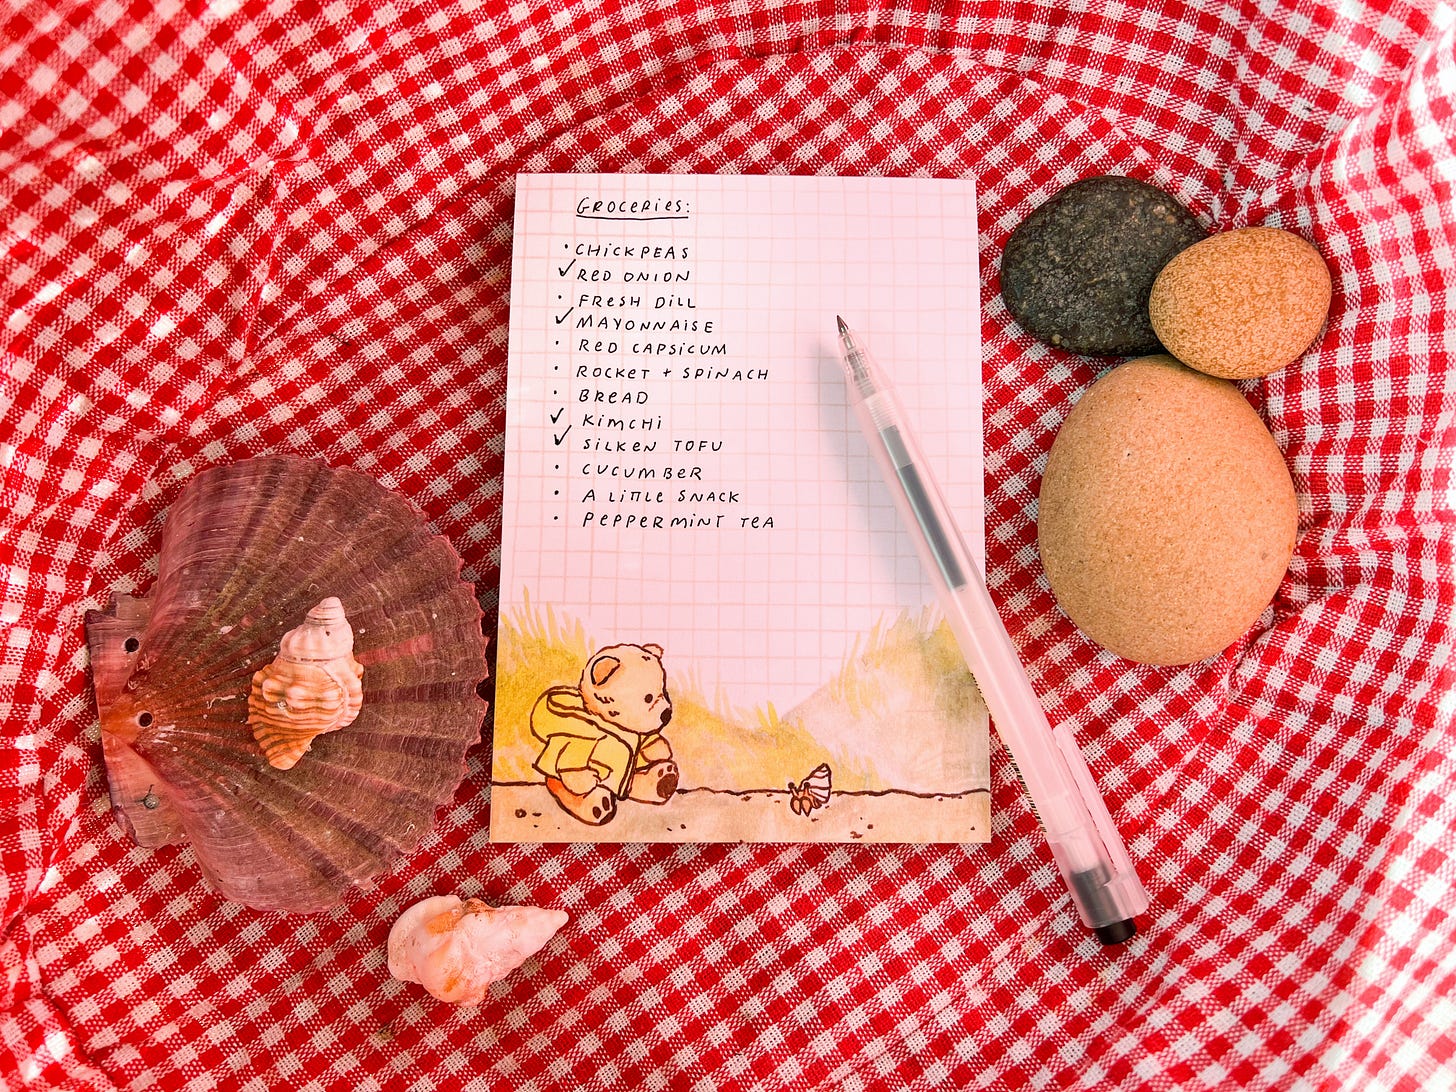 GROCERIES:
• CHICKPEAS
✓ RED ONION
• FRESH DILL
✓ MAYONNAISE
• RED CAPSICUM
• ROCKET + SPINACH
• BREAD
✓ KIMCHI
✓ SILKEN TOFU
• CUCUMBER
• A LITTLE SNACK
• PEPPERMINT TEA